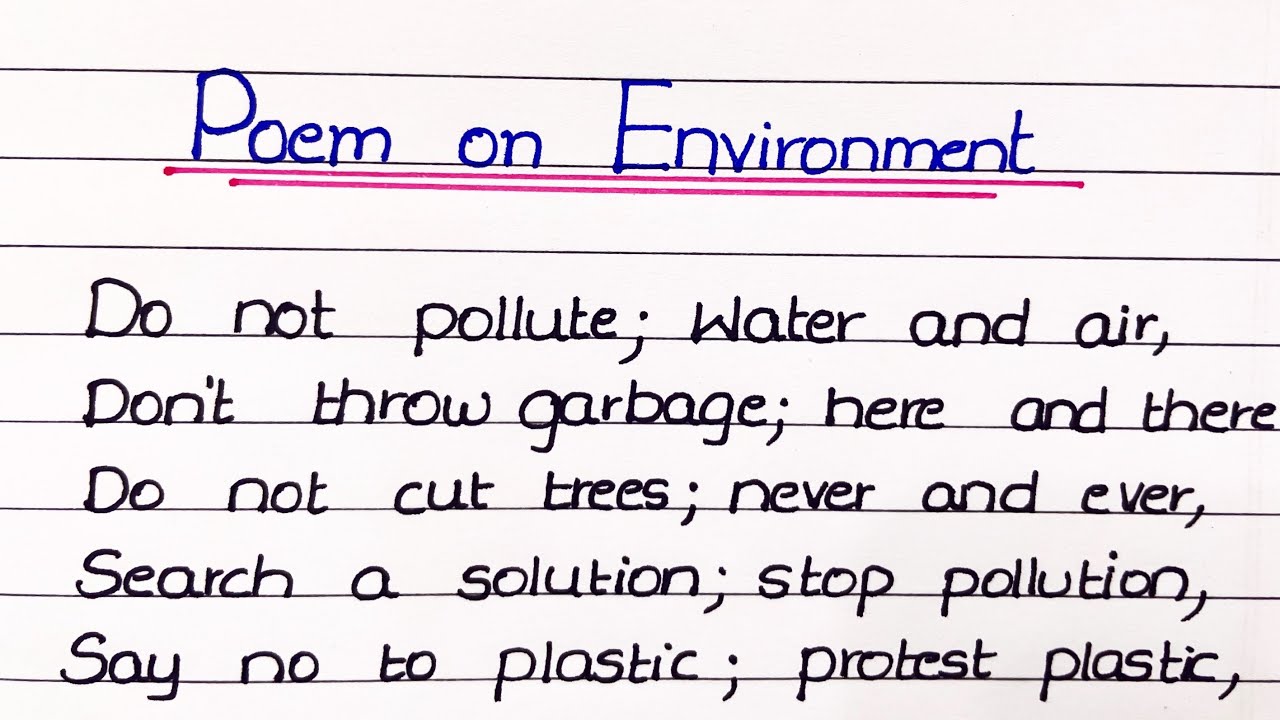 Poem on Environment
Do not pollute; Water and air,
Don't throw garbage; here and there
Do not cut trees; never and ever,
Search a solution; stop pollution,
Say no to plastic; protest plastic,